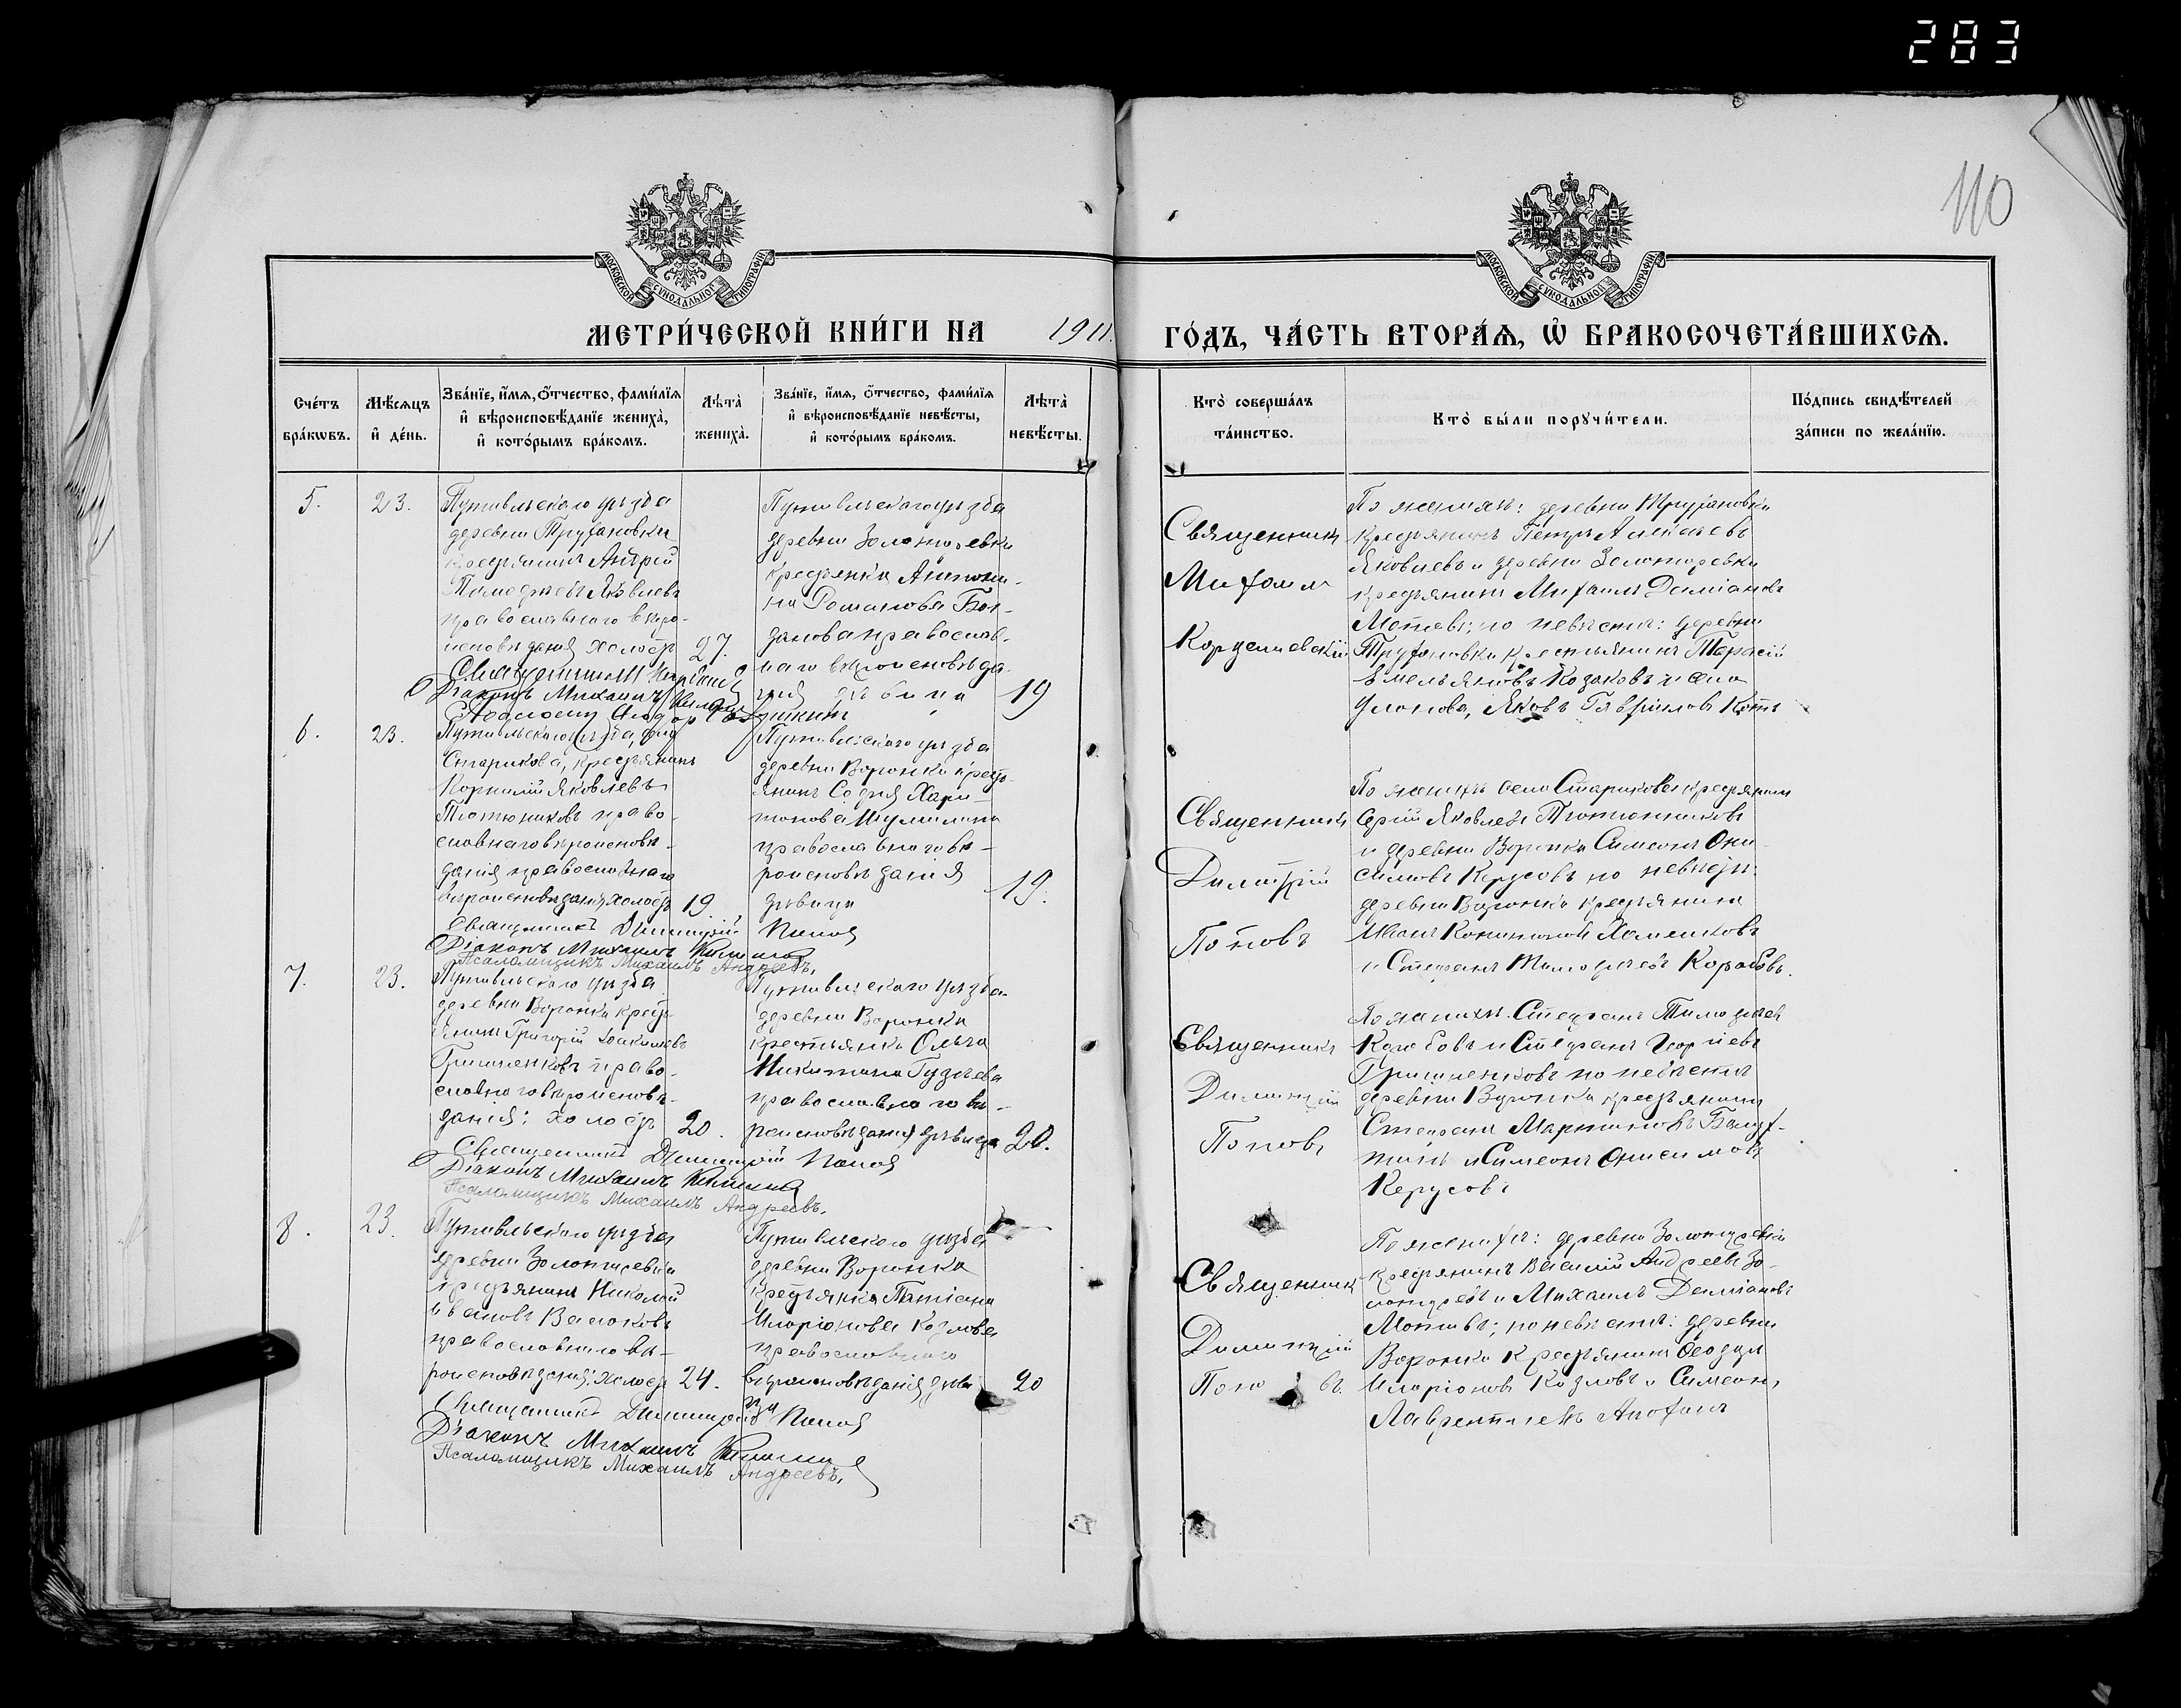 283
110
МОСКОВСКОЙ СУНОДАЛЬНОЙ ТИПОГРАФІИ
МОСКОВСКОЙ СУНОДАЛЬНОЙ ТИПОГРАФІИ
МЕТРИ́ЧЕСКОЙ КНИ́ГИ НА 1911. ГО́ДЪ, ЧА́СТЬ ВТОРА́Ѧ, Ѡ҆ БРАКОСОЧЕТА́ВШИХСѦ.
Сче́тъ бра́кѡвъ.
Мѣ́сѧцъ и҆ де́нь.
Зва́нїе, и҆́мѧ, ѻ҆́тчество, фами́лїѧ
и҆ вѣроисповѣ́данїе жениха̀,
и҆ кото́рымъ бра́комъ.
Лѣта̀ жениха̀.
Зва́нїе, и҆́мѧ, ѻ҆́тчество, фами́лїѧ
и҆ вѣроисповѣ́данїе невѣ́сты,
и҆ кото́рымъ бра́комъ.
Лѣта̀ невѣ́сты.
Кто̀ соверша́лъ та́инство.
Кто̀ бы́ли порꙋчи́тели.
По́дпись свидѣ́телей
за́писи по жела́нїю.
5.
23.
Путивльскаго уѣзда
деревни Труфановки
крестьянинъ Андрей
Тимофеевъ Яковлевъ
православнаго вѣро-
исповѣданія холостъ
27.
Діаконъ Михаилъ
Путивльскаго уѣзда
деревни Золотаревки
крестьянка Антони-
на Романова Бог-
данова православ-
наго вѣроисповѣда-
нія дѣвица
19
Священникъ
Михаилъ
По женихѣ: деревни Труфановки
крестьянинъ Петръ Алексѣевъ
Яковлевъ и деревни Золотаревки
крестьянинъ Михаилъ Даміановъ
по невѣстѣ: деревни
Труфановки крестьянинъ Тарасій
Емельяновъ Козаковъ и села
Яковъ Гавріиловъ Котъ
6.
23.
Путивльскаго уѣзда, села
Старикова, крестьянинъ
Корнилій Яковлевъ
Тютюниковъ право-
славнаго вѣроисповѣ-
данія православнаго
вѣроисповѣданія холостъ
19
Священникъ Димитрій Попов
Діаконъ Михаилъ
Псаломщикъ Михаилъ Андреевъ.
Путивльскаго уѣзда
деревни Воронки кресть-
янинъ Софія Хари-
тонова Шумилина
православнаго вѣ-
роисповѣданія
дѣвица
19.
Священникъ
Димитрій
Поповъ
По женихѣ села Стариковъ крестьянинъ
Сергій Яковлевъ Тютюнниковъ
и деревни Воронки Симеонъ Они-
симовъ Керусовъ по невѣстѣ:
деревни Воронки крестьянинъ
Иванъ Хоменковъ
и Стефанъ Тимофеевъ Коробовъ.
7.
23.
Путивльскаго уѣзда
деревни Воронки кресть-
янинъ Григорій Іоакимовъ
Гришенковъ право-
славнаго вѣроисповѣ-
данія: холостъ
20.
Священникъ Димитрій Попов
Діаконъ Михаилъ
Псаломщикъ Михаилъ Андреевъ.
Путивльскаго уѣзда
деревни Воронки
крестьянка Ольга
Никитина Гузеева
православнаго вѣ-
роисповѣданія дѣвица
20.
Священникъ
Димитрій
Поповъ
По женихѣ: Стефанъ Тимофеев
Коробовъ и Стефанъ Георгіевъ
Гришенковъ по невѣстѣ
деревни Воронка крестьянинъ
Стефанъ Мартиновъ
и Симеонъ Онисимовъ
Керусовъ
8.
23.
Путивльскаго уѣзда
деревни Золотаревки
крестьянинъ Николай
Ивановъ Валюковъ
православнаго вѣ-
роисповѣданія; холостъ
24.
Священникъ Димитрій Попов
Діаконъ Михаилъ
Псаломщикъ Михаилъ Андреевъ.
Путивльскаго уѣзда
деревни Воронка
Крестьянка Татіана
Иларіонова Козлова
православнаго
вѣроисповѣданія дѣви-
ца
20
Священник
Димитрій
Поповъ.
По женихѣ: деревни Золотаревки
крестьянинъ Василій Андреевъ Зо-
лотаревъ и Михаилъ Даміановъ
по невѣстѣ: деревни
Воронки Крестьянинъ Ѳеодоръ
Иларіоновъ Козловъ и Симеонъ
Лаврентіевъ